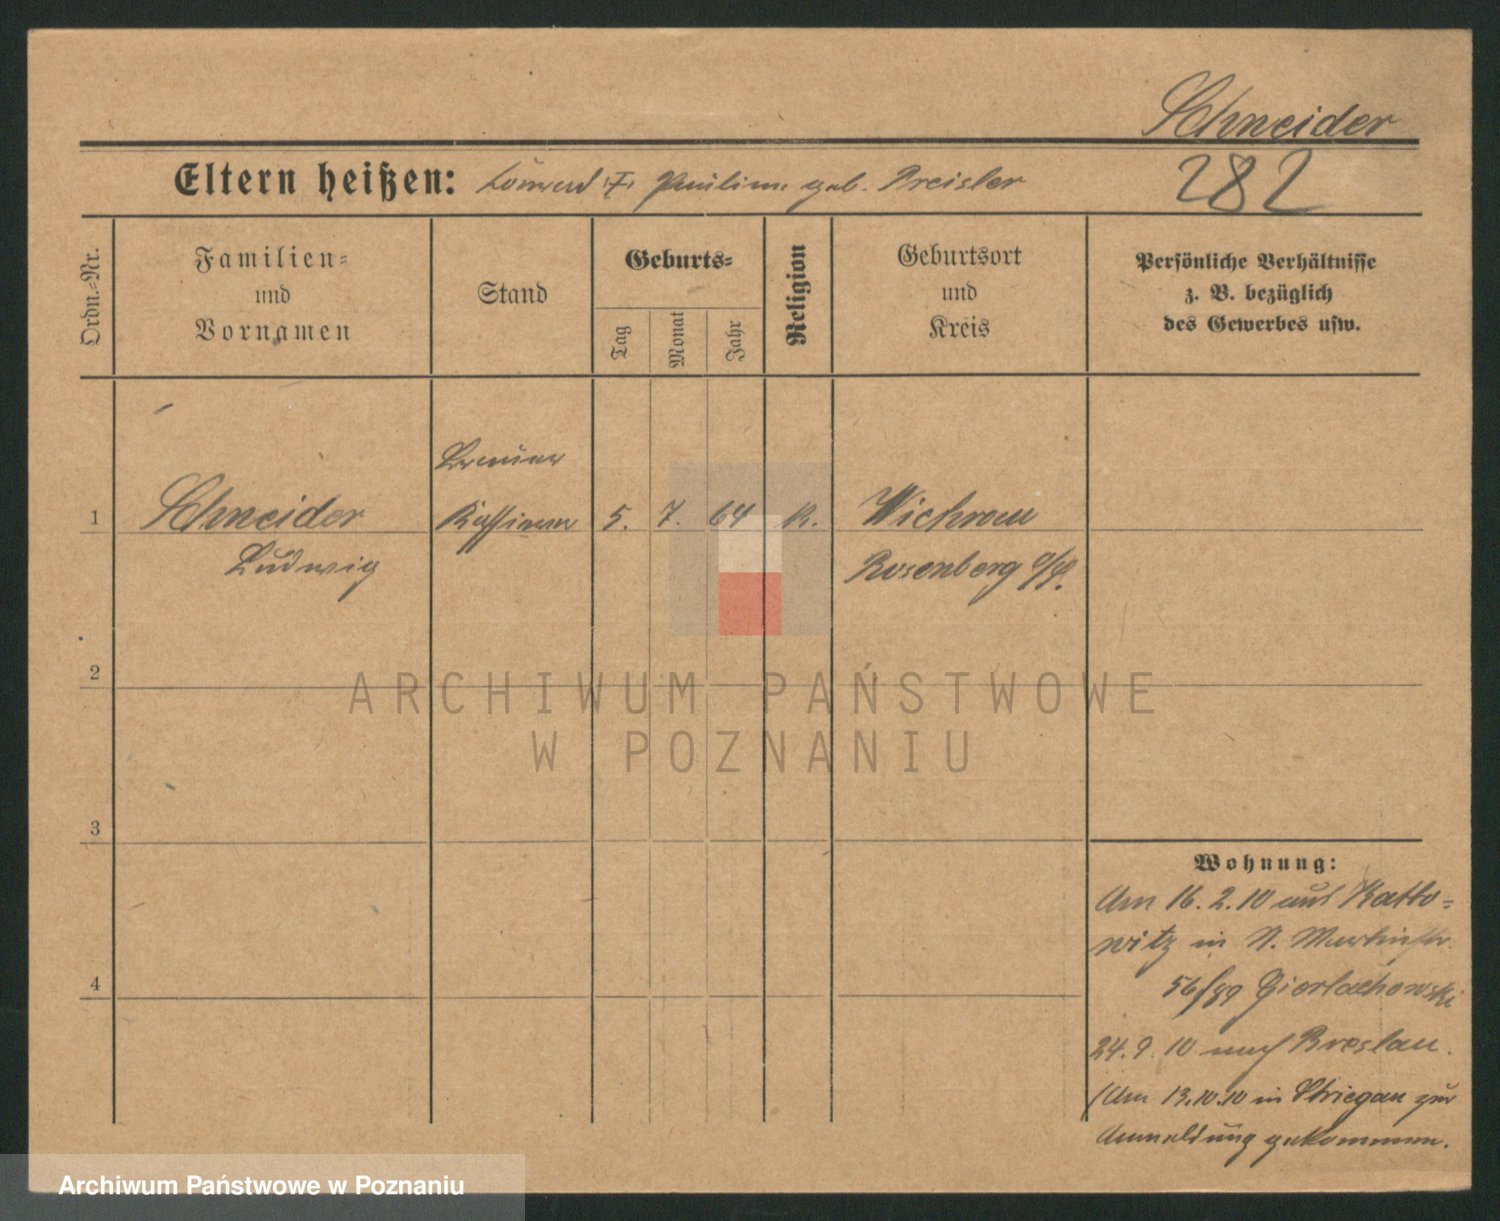 Schneider
282
Eltern heißen: Konrad u. Paulina geb. Preisler
Ordn.=Nr.
Familien=
und
Vornamen
Stand
Geburts=
Tag
Monat
Jahr
Religion
Geburtsort
und
Kreis
Persönliche Verhältnisse
z. B. bezüglich
des Gewerbes usw.
1
Schneider
Ludwig
5. 7. 64 K.
Wichrau
Rosenberg O/S.
2
3
4
Wohnung:
Am 16. 2. 10 aus Katto=
witz in St. Martinstr.
56/59 Gierlachowski
24. 9. 10 nach Breslau.
(Am 13.10.10 in Striegau zur
Anmeldung gekommen.
ARCHIWUM PAŃSTWOWE
W POZNANIU
Archiwum Państwowe w Poznaniu